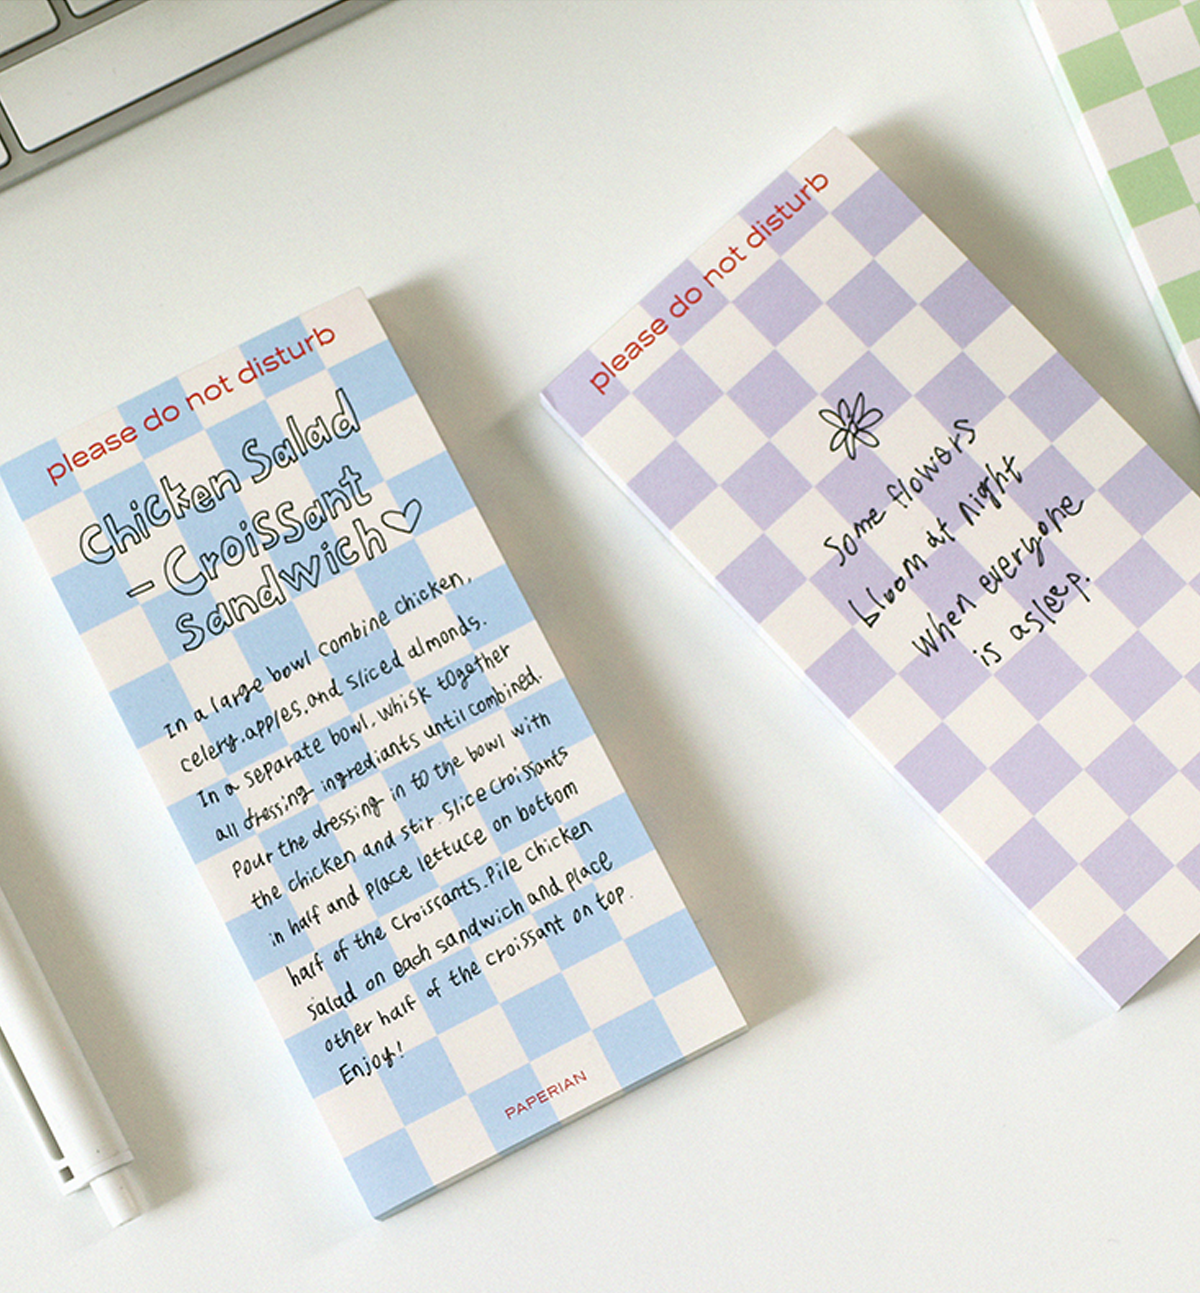 please do not disturb
Chicken Salad
- Croissant
sandwich♡
In a large bowl combine chicken,
celery.apples.and sliced almonds.
In a separate bowl, whisk together
all dressing ingrediants until combined.
pour the dressing in to the bowl with
the chicken and stir. Slice croissants
in half and place lettuce on bottom
half of the croissants.Pile chicken
salad on each sandwich and place
other half of the croissant on top.
Enjoy!
PAPERIAN
please do not disturb
some flowers
bloom at night
when everyone
is asleep.